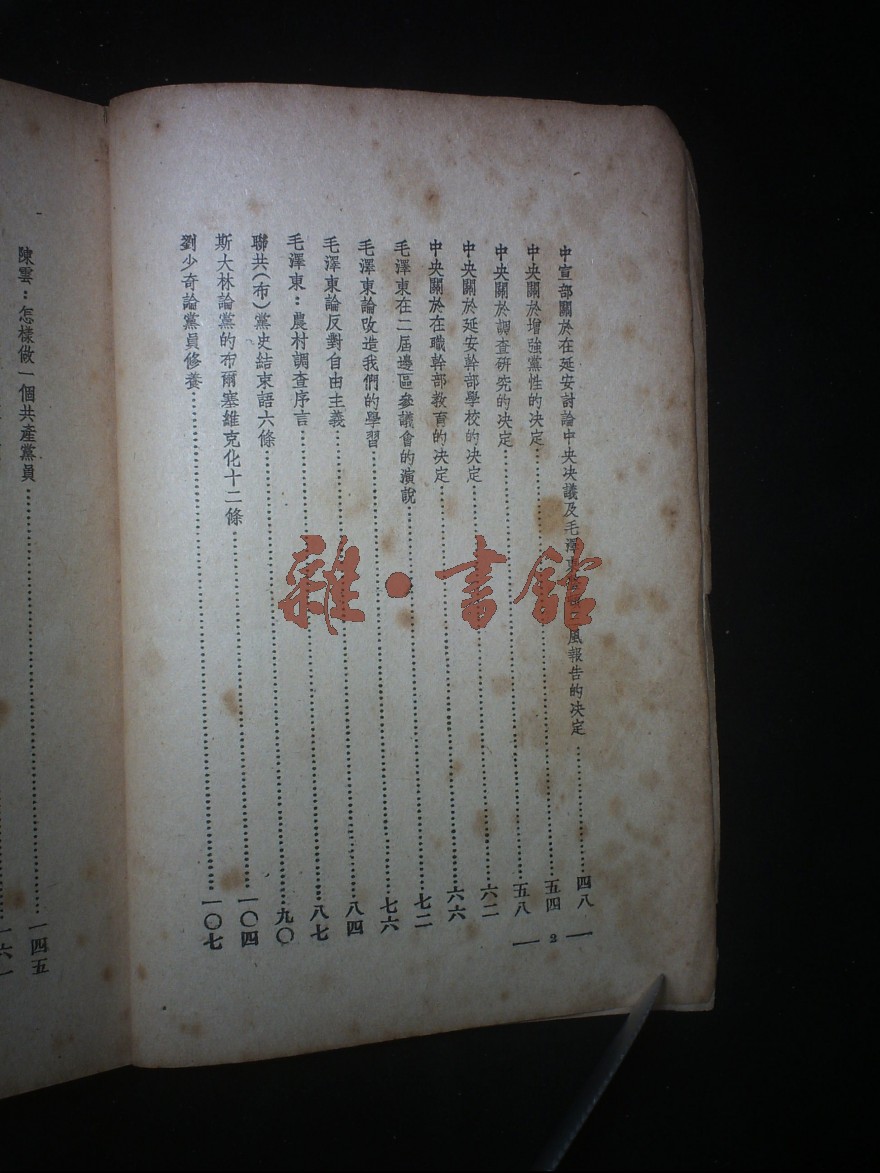 中宣部關於在延安討論中央决議及毛澤東 風報告的决定……四八
中央關於增強黨性的决定……五四
中央關於調查硏究的决定……五八
中央關於延安幹部學校的决定……六二
中央關於在職幹部敎育的决定……六六
毛澤東在二屆邊區參議會的演說……七二
毛澤東論改造我們的學習……七六
毛澤東論反對自由主義……八四
毛澤東：農村調查序言……八七
聯共（布）黨史結束語六條……九〇
斯大林論黨的布爾塞維克化十二條……一〇四
劉少奇論黨員修養……一〇七
— 2 —
陳雲：怎樣做一個共產黨員……一四五
雜·書館